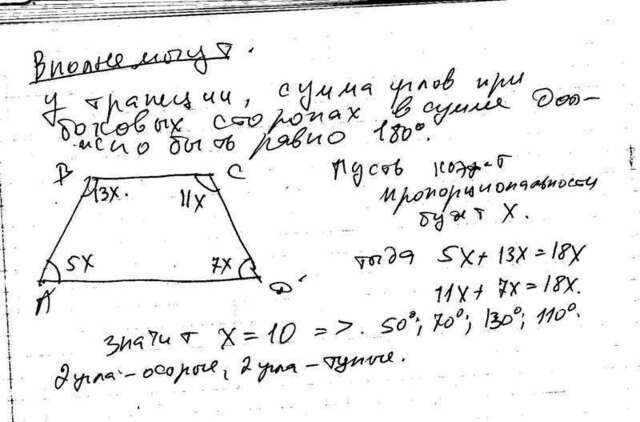 Вполне могут.
У трапеции, сумма углов при
боковых сторонах в сумме дол-
жно быть равно 180°.
B
C
13x.
11x
5x
7x
A
D
Пусть коэф-т
пропорциональности
будет x.
тогда 5x + 13x = 18x
11x + 7x = 18x.
Значит x = 10 => 50°; 70°; 130°; 110°.
2 угла - острые, 2 угла - тупые.